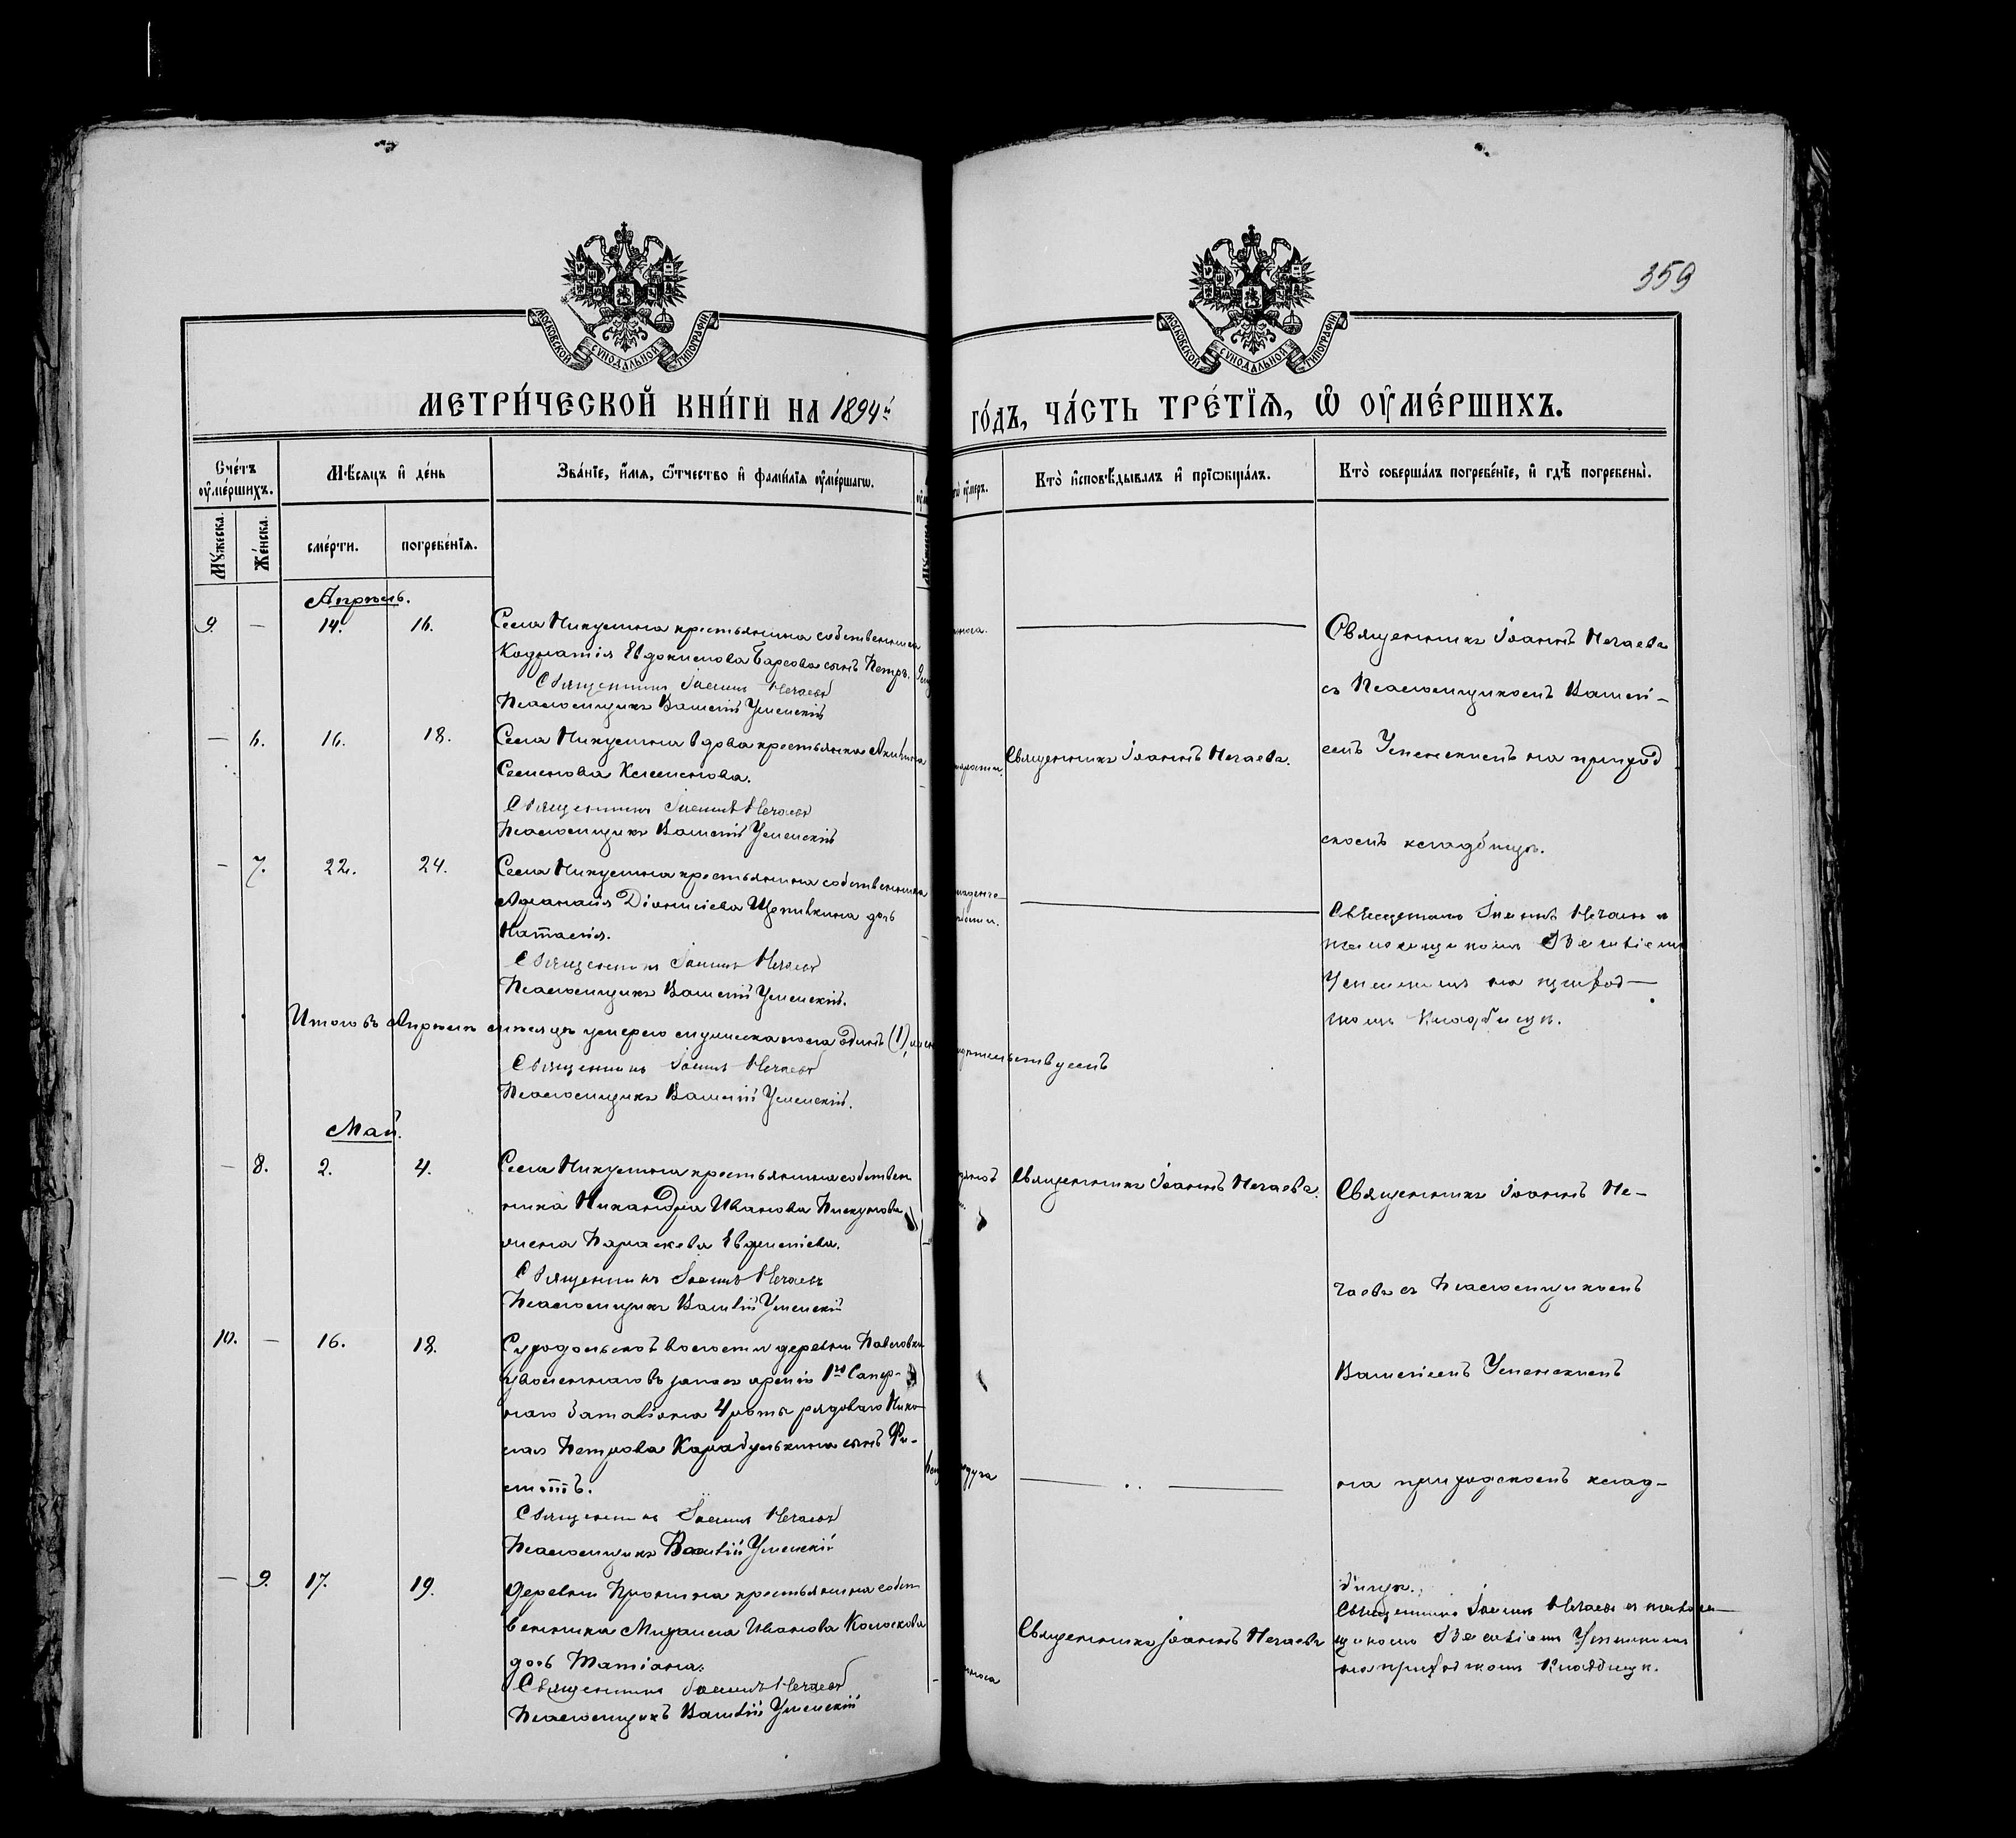 359
МОСКОВСКОЙ СУНОДАЛЬНОЙ ТИПОГРАФІИ
МОСКОВСКОЙ СУНОДАЛЬНОЙ ТИПОГРАФІИ
МЕТРИ́ЧЕСКОЙ КНИ́ГИ НА 1894й
ГО́ДЪ, ЧА́СТЬ ТРЕ́ТЇѦ, Ѡ ОУМЕ́РШИХЪ.
Сче́тъ оуме́ршихъ.
Мѣ́сяцъ и де́нь
Зва́нїе, и́мя, ѻ́тчество и фами́лїя оуме́ршагѡ.
Кто̀ и҆сповѣ́дывалъ и҆ прїѡбща́лъ.
Кто̀ соверша́лъ погребе́нїе, и҆ гдѣ̀ погребены̀.
Мꙋ́жеска.
Же́нска.
сме́рти.
погребе́нїя.
Апрѣль.
9. — 14. 16.
Села Никулина крестьянина собственника
Кодрата Евдокимова Барсова сынъ Петръ.
Священникъ Іоаннъ Нечаевъ
Псаломщикъ Василій Успенскій
Священникъ Іоаннъ Нечаевъ
съ Псаломщикомъ Василі-
емъ Успенскимъ на приход
скомъ кладбищѣ.
— 6. 16. 18.
Села Никулина вдова крестьянка Акилина
Семенова Клименова.
Священникъ Іоаннъ Нечаевъ
Псаломщикъ Василій Успенскій
Священникъ Іоаннъ Нечаевъ.
— 7. 22. 24.
Села Никулина крестьянина собственника
Афанасія Діонисіева Щепивкина дочь
Настасія.
Священникъ Іоаннъ Нечаевъ
Псаломщикъ Василій Успенскій.
Священникъ Іоаннъ Нечаевъ съ
псаломщикомъ Василіемъ
Успенскимъ на приход—
скомъ кладбищѣ.
Итого въ Апрѣлѣ мѣсяцѣ умерло мужеска пола одинъ (1),
Священникъ Іоаннъ Нечаевъ
Псаломщикъ Василій Успенскій.
Май.
— 8. 2. 4.
Села Никулина крестьянина собствен
ника Никандра Иванова Пискунова
жена Параскева Евфиміева.
Священникъ Іоаннъ Нечаевъ
Псаломщикъ Василій Успенскій
Священникъ Іоаннъ Нечаевъ.
Священникъ Іоаннъ Не-
чаевъ съ Псаломщикомъ
Василіемъ Успенскимъ
на приходскомъ клад-
бищѣ.
10. — 16. 18.
волости деревни Павловки
уволеннаго въ запасъ арміи 1го Сапер-
наго баталіона 4 роты рядоваго Нико
лая Петрова Карабулькина сынъ Фи-
липпъ.
Священникъ Іоаннъ Нечаевъ
Псаломщикъ Василій Успенскій
— 9. 17. 19.
Деревни Пронина крестьянина собст
венника Михаила Иванова Колоскова
дочь Татіана.
Священникъ Іоаннъ Нечаевъ
Псаломщикъ Василій Успенскій
Священникъ Іоаннъ Нечаевъ
Священникъ Іоаннъ Нечаевъ съ псалом
щикомъ Василіемъ Успенскимъ
на приходскомъ кладбищѣ.